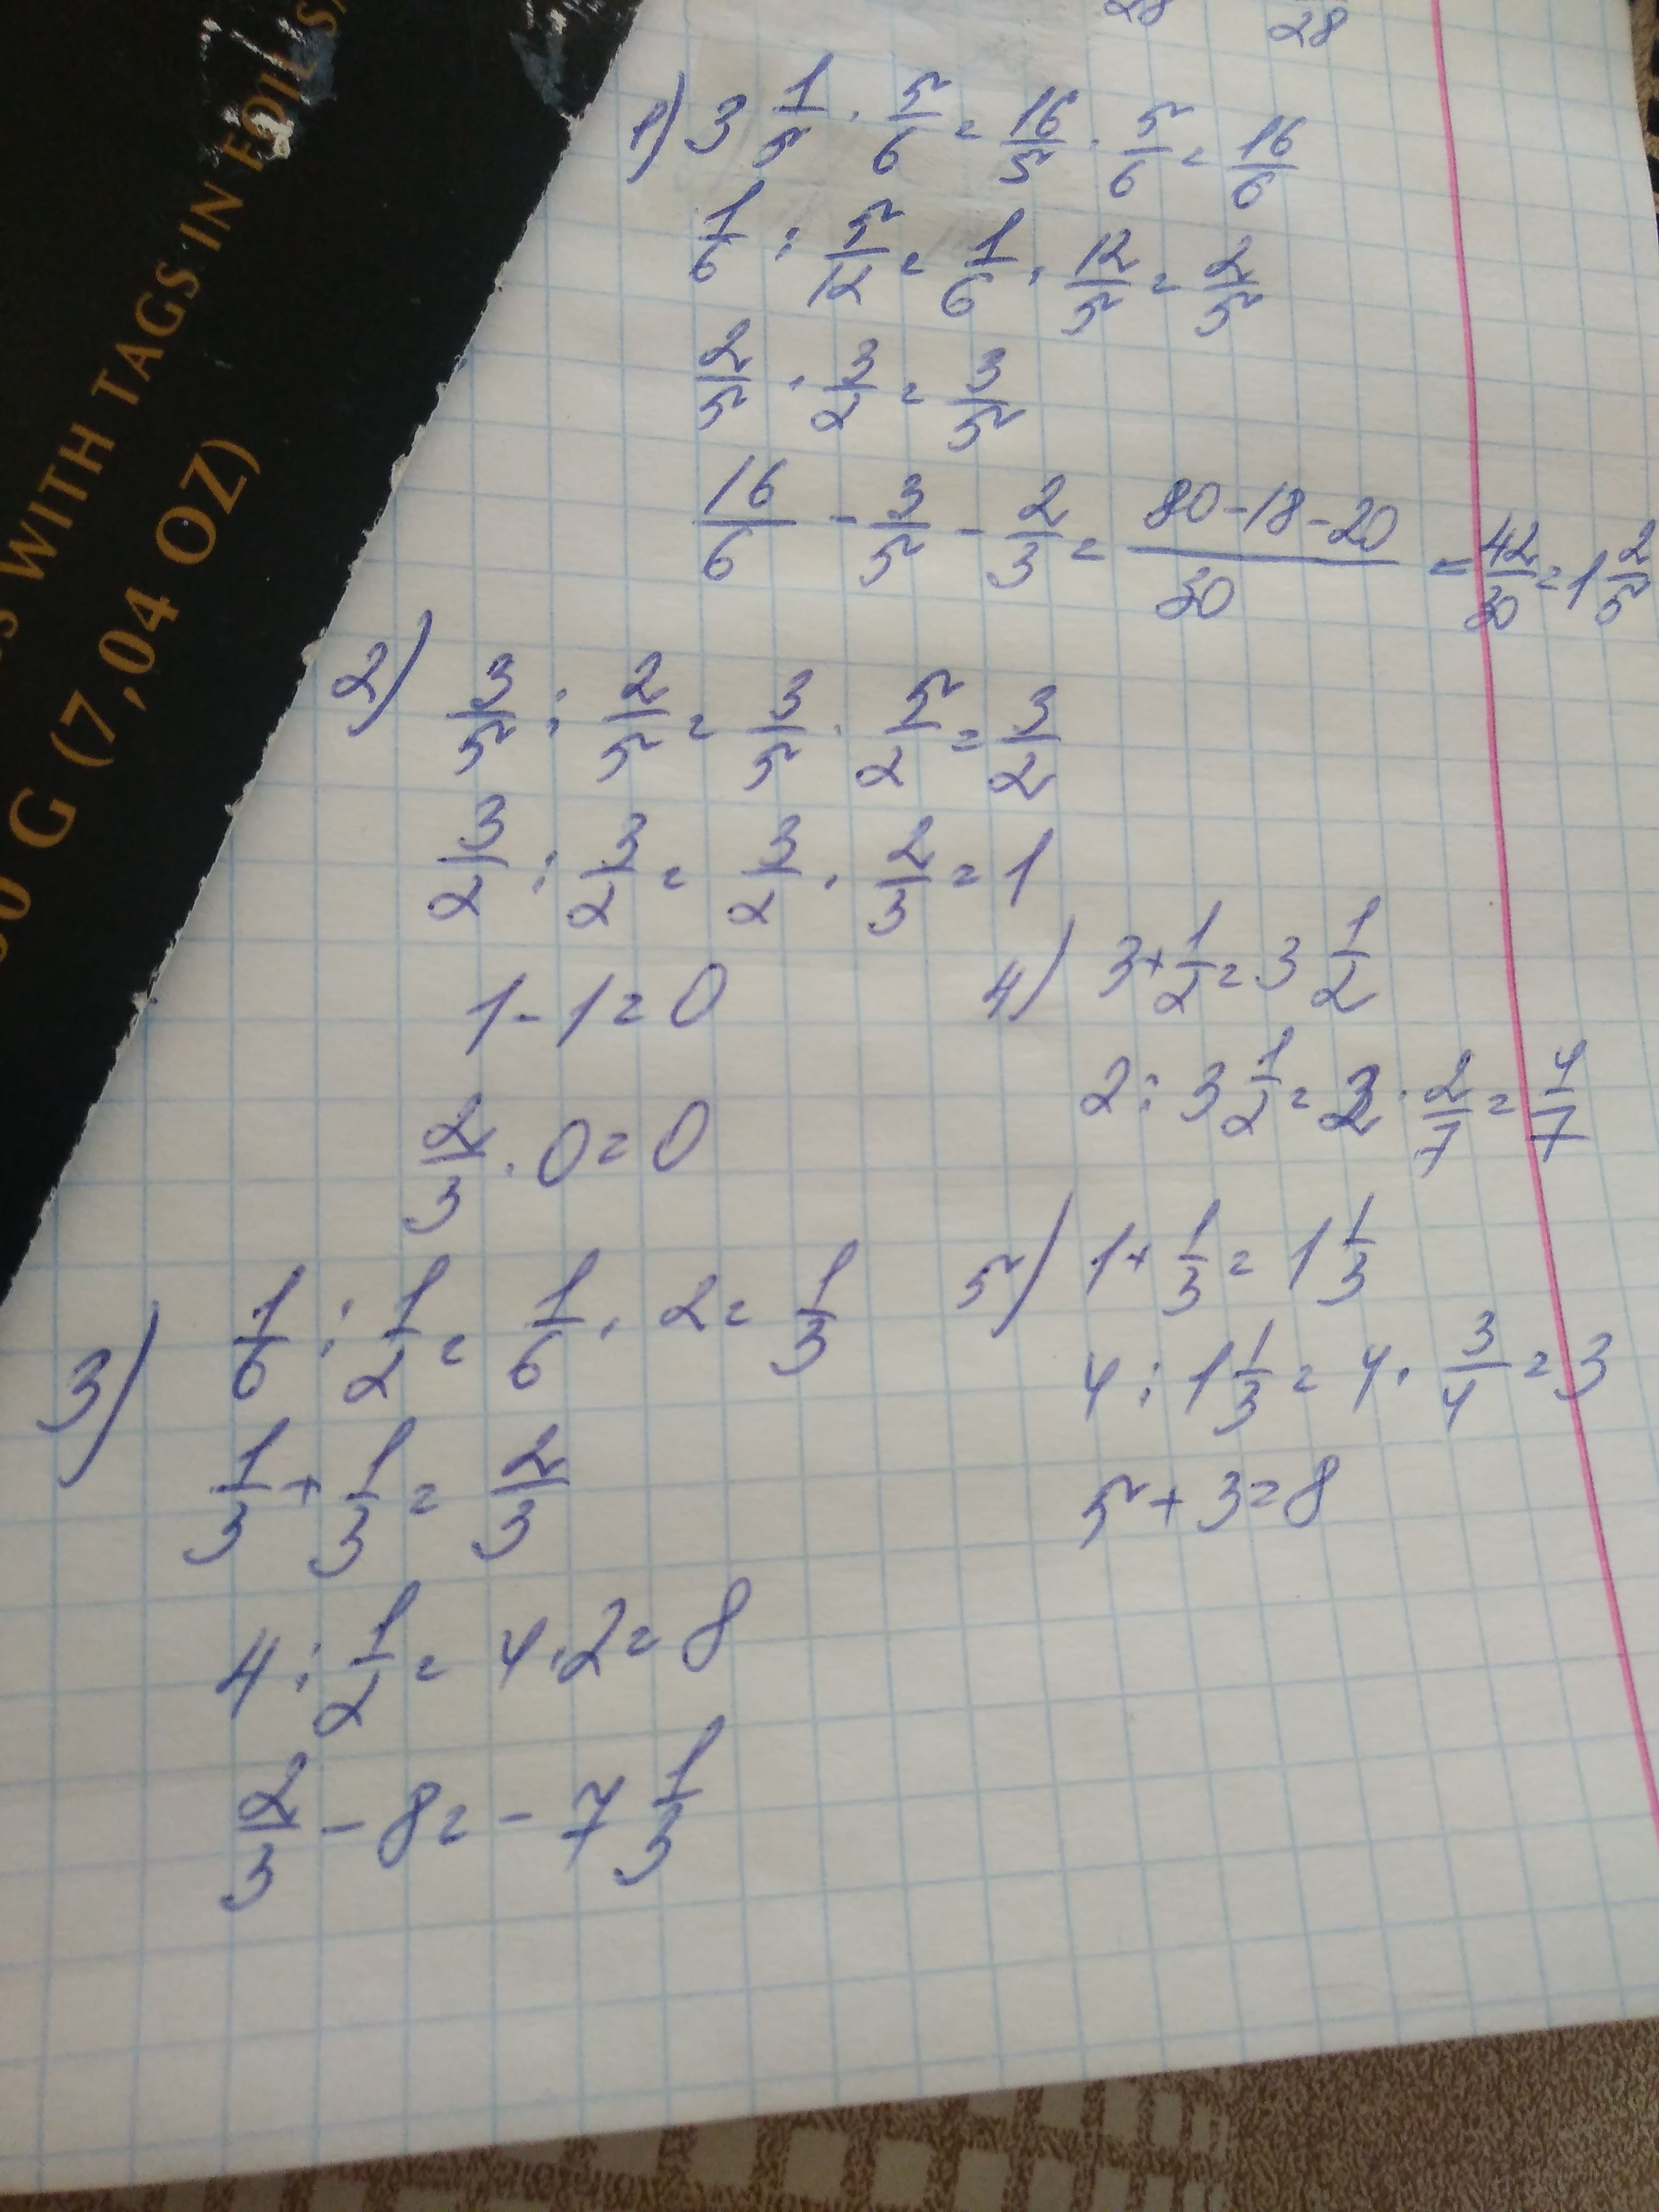 S WITH TAGS IN FOIL S
0 G (7,04 OZ)
28 28
1) 3 1/5 · 5/6 = 16/5 · 5/6 = 16/6
1/6 : 5/12 = 1/6 · 12/5 = 2/5
2/5 · 3/2 = 3/5
16/6 - 3/5 - 2/3 = (80-18-20)/30 = 42/30 = 1 2/5
2) 3/5 : 2/5 = 3/5 · 5/2 = 3/2
3/2 : 3/2 = 3/2 · 2/3 = 1
1 - 1 = 0
2/3 · 0 = 0
3) 1/6 : 1/2 = 1/6 · 2 = 1/3
1/3 + 1/3 = 2/3
4 : 1/2 = 4 · 2 = 8
2/3 - 8 = - 7 1/3
4) 3 + 1/2 = 3 1/2
2 : 3 1/2 = 2 · 2/7 = 4/7
5) 1 + 1/3 = 1 1/3
4 : 1 1/3 = 4 · 3/4 = 3
5 + 3 = 8